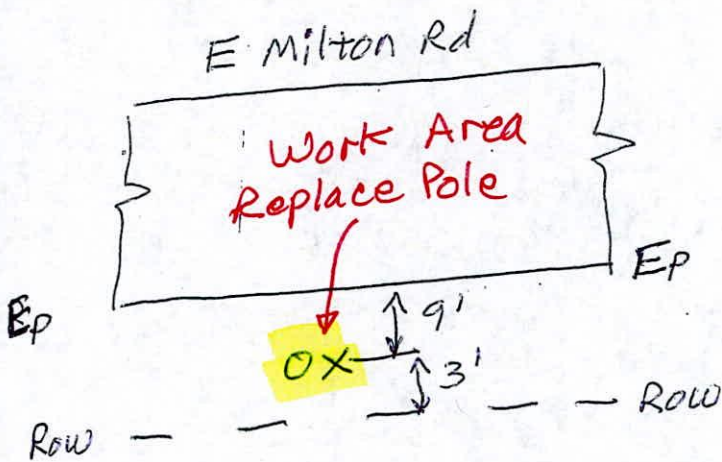 E Milton Rd
Work Area
Replace Pole
Ep
Ep
9'
OX
3'
Row
Row